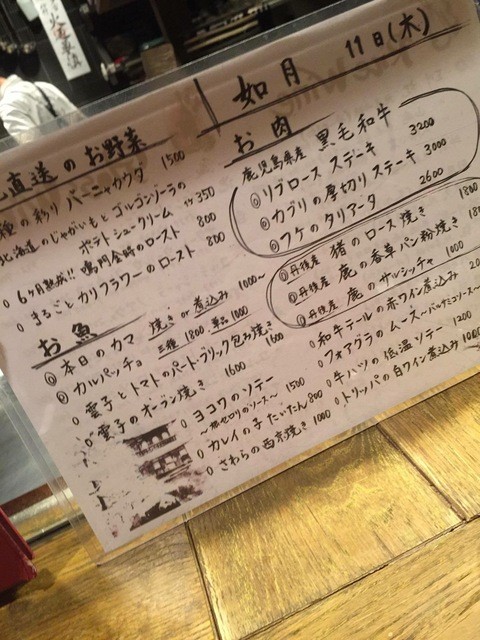 如月 11日(木)
直送のお野菜
種の彩り バーニャカウダ 1500
北海道のじゃがいもとゴルゴンゾーラの
ポテトシュークリーム 350
6ヶ月熟成!! 鳴門金時のロースト 800
まるごとカリフラワーのロースト 800
お魚
本日のカマ 焼き or 煮込み 1000〜
カルパッチョ 三種 1800 単品 1000
雲子とトマトのパートブリック包み焼き 1600
雲子のオーブン焼き 1600
ヨコワのソテー 1500
〜根セロリのソース〜
カレイの子たいたん 800
さわらの西京焼き 1000
お肉
鹿児島県産 黒毛和牛
リブロース ステーキ 3200
カブリの厚切り ステーキ 3000
フケのタリアータ 2600
丹後産 猪のロース焼き 1800
丹後産 鹿の香草パン粉焼き 1800
丹後産 鹿のサルシッチャ 1000
和牛テールの赤ワイン煮込み
フォアグラのムース〜バルサミコソース〜
牛ハツの低温ソテー 1200
トリッパの白ワイン煮込み 1000